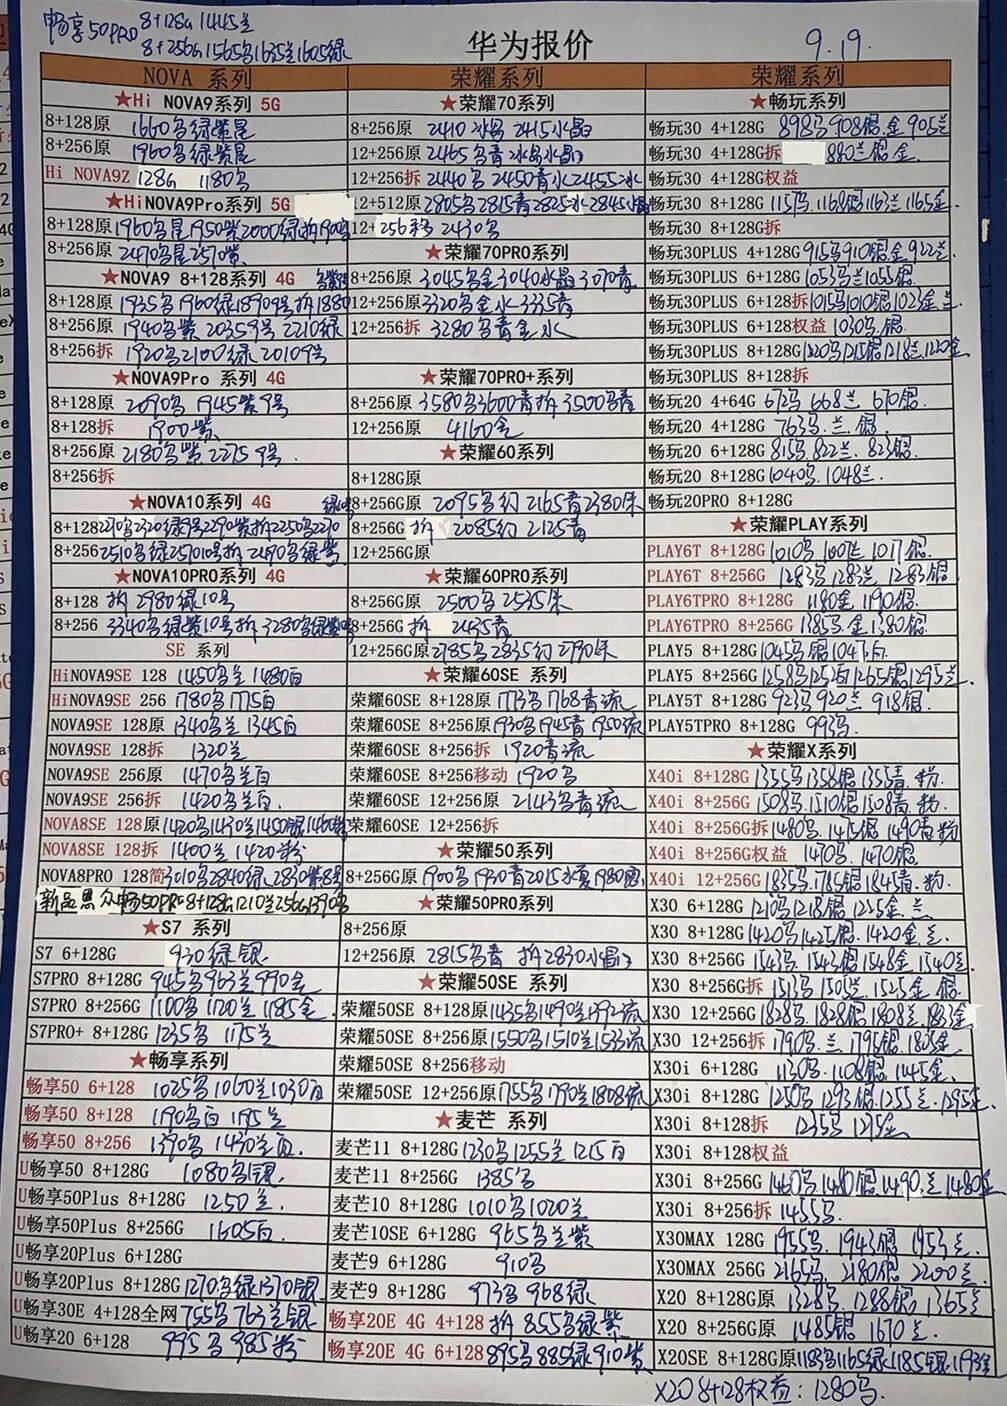 畅享50PRO 8+128G 1445兰
8+256G 1565乌 1635兰 1605绿
华为报价
9.19.
NOVA 系列
★Hi NOVA9系列 5G
8+128原 1660乌绿紫昆
8+256原 1960乌绿紫昆
Hi NOVA9Z 128G 1180乌
★HiNOVA9Pro系列 5G
8+128原 1960乌昆 1950紫 2000绿拆1900乌
8+256原 2470乌昆 2570紫
★NOVA9 8+128系列 4G
8+128原 1935乌 1960绿 1890 9号 拆1880
8+256原 1940乌紫 2035 9号 2210绿
8+256拆 1920乌 2100绿 2010 9号
★NOVA9Pro 系列 4G
8+128原 2090乌 1945紫9号
8+128拆 1900紫
8+256原 2180乌紫 2275 9号
8+256拆
★NOVA10系列 4G
8+128
8+256 2510乌绿 2570 10号 拆 2490乌绿紫
★NOVA10PRO系列 4G
8+128 拆 2980绿10号
8+256 3340乌绿紫10号拆 3280乌绿紫
SE 系列
HiNOVA9SE 128 1450乌兰 1480白
HiNOVA9SE 256 1780乌 1775白
NOVA9SE 128原 1340乌兰 1345白
NOVA9SE 128拆 1320兰
NOVA9SE 256原 1470乌兰白
NOVA9SE 256拆 1420乌兰白.
NOVA8SE 128原 1420乌 1430兰 1450银 1460粉
NOVA8SE 128拆 1400兰 1420粉
NOVA8PRO 128简 3010乌 2840绿 2830紫8号
新品惠众畅50PRO 8+128G 1210兰 256G 1390乌
★S7 系列
S7 6+128G 930绿银
S7PRO 8+128G 945乌 963兰 990金
S7PRO 8+256G 1100乌 1120兰 1185金
S7PRO+ 8+128G 1235乌 1175兰
★畅享系列
畅享50 6+128 1025乌 1060兰 1030白
畅享50 8+128 1190乌白 1195兰
畅享50 8+256 1390乌 1430兰白.
U畅享50 8+128G 1080乌银
U畅享50Plus 8+128G 1250兰.
U畅享50Plus 8+256G 1605白.
U畅享20Plus 6+128G
U畅享20Plus 8+128G 1270乌绿 1370银
U畅享30E 4+128全网 755乌 763兰银
U畅享20 6+128 995乌 985粉
荣耀系列
★荣耀70系列
8+256原 2410冰乌 2415水晶
12+256原 2465乌青冰乌水晶
12+256拆 2440乌 2450青水 2455冰
12+512原 2805乌 2815青 2825冰 2845水晶
12+256移 2430乌
★荣耀70PRO系列
8+256原 3045乌金 3040水晶 3070青
12+256原 3320乌金水 3335青
12+256拆 3280乌青金水
★荣耀70PRO+系列
8+256原 3580乌 3600青拆 3500乌青
12+256原 4160金
★荣耀60系列
8+128G原
8+256G原 2095乌幻 2165青 2380朱
8+256G 拆 2085幻 2125青
12+256G原
★荣耀60PRO系列
8+256G原 2500乌 2535朱
8+256G 拆 2435青
12+256G原 2785乌 2835幻 2790朱
★荣耀60SE 系列
荣耀60SE 8+128原 1773乌 1768青流
荣耀60SE 8+256原 1930乌 1945青 1950流
荣耀60SE 8+256拆 1920青流
荣耀60SE 8+256移动 1920乌
荣耀60SE 12+256原 2143乌青流
荣耀60SE 12+256拆
★荣耀50系列
8+256G原 1900乌 1930青 2015水夏 1980圈
★荣耀50PRO系列
8+256原
12+256原 2815乌青 拆2830水晶
★荣耀50SE系列
荣耀50SE 8+128原 1435乌 1490兰 1392流
荣耀50SE 8+256原 1550乌 1510兰 1533流
荣耀50SE 8+256移动
荣耀50SE 12+256原 1755乌 1790兰 1808流
★麦芒 系列
麦芒11 8+128G 1230乌 1255兰 1215白
麦芒11 8+256G 1385乌
麦芒10 8+128G 1010乌 1020兰
麦芒10SE 6+128G 965乌兰紫
麦芒9 6+128G 910乌
麦芒9 8+128G 973乌 968绿
畅享20E 4G 4+128 拆 855乌绿紫
畅享20E 4G 6+128 895乌 885绿 910紫
荣耀系列
★畅玩系列
畅玩30 4+128G 898乌 908银.金 905兰
畅玩30 4+128G拆 880兰银金
畅玩30 4+128G权益
畅玩30 8+128G 1157乌. 1168银 1163兰 1165金.
畅玩30 8+128G拆
畅玩30PLUS 4+128G 915乌 910银.金 922兰
畅玩30PLUS 6+128G 1053乌兰 1055银.
畅玩30PLUS 6+128拆 1015乌 1010银 1023金兰.
畅玩30PLUS 6+128权益 1030乌.银
畅玩30PLUS 8+128G 1220乌 1215银 1218兰 1220金
畅玩30PLUS 8+128拆
畅玩20 4+64G 672乌 668兰 670银
畅玩20 4+128G 763乌.兰.银
畅玩20 6+128G 815乌. 822兰. 823银.
畅玩20 8+128G 1040乌. 1048兰.
畅玩20PRO 8+128G
★荣耀PLAY系列
PLAY6T 8+128G 1010乌. 1007兰 1017银.
PLAY6T 8+256G 1283乌 1283兰 1283银
PLAY6TPRO 8+128G 1180金 1190银.
PLAY6TPRO 8+256G 1385乌.金 1380银.
PLAY5 8+128G
PLAY5 8+256G
PLAY5T 8+128G 923乌 920兰 918银.
PLAY5TPRO 8+128G 993乌.
★荣耀X系列
X40i 8+128G 1355乌 1358银 1355青.粉.
X40i 8+256G 1508乌. 1510银 1508青.粉.
X40i 8+256G拆 1480乌. 1475银 1490青粉
X40i 8+256G权益 1470乌. 1470银
X40i 12+256G 1835乌. 1785银 1845青.粉.
X30 6+128G 1210乌 1218银 1225金.兰
X30 8+128G 1420乌 1425银. 1420金兰.
X30 8+256G 1543乌. 1543银 1548金. 1540兰.
X30 8+256G拆 1513乌 1505兰. 1525金.银.
X30 12+256G 1828乌. 1828银 1808兰. 1833金
X30 12+256拆 1790乌.兰. 1795银. 1805金
X30i 6+128G 1130乌. 1108银 1145金.
X30i 8+128G 1250乌. 1293银. 1255兰. 1295金.
X30i 8+128拆 1235乌 1275金.
X30i 8+128权益
X30i 8+256G 1460乌. 1480银. 1490.兰 1480金
X30i 8+256拆 1455乌.
X30MAX 128G 1955乌. 1943银 1953兰.
X30MAX 256G 2165乌. 2180银 2200兰.
X20 8+128G原 1328乌. 1288银 1365兰
X20 8+256G原 1485银 1670兰.
X20SE 8+128G原 1183乌 1165绿 1185银 1193金
X20 8+128权益: 1280乌.